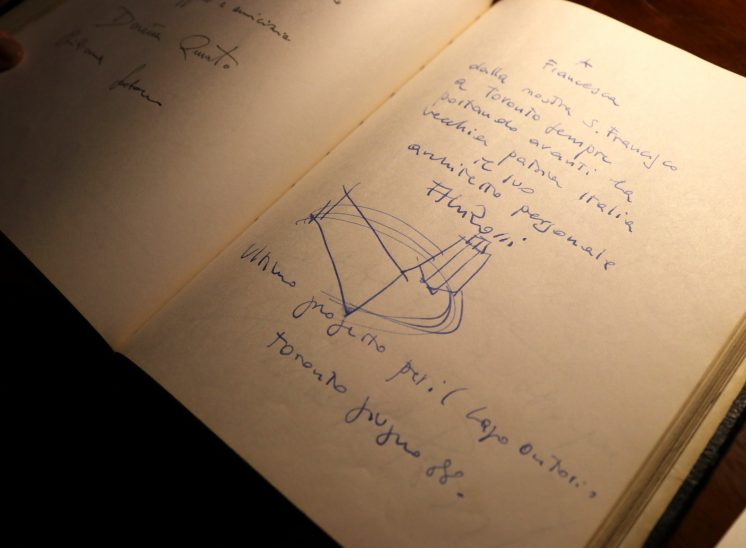 e amicizia
A
Francesca
dalla nostra S. Francisco
a Toronto sempre
portando avanti la
vecchia patria Italia
il tuo
architetto personale
ultimo progetto per il Lago Ontario,
Toronto giugno 88.